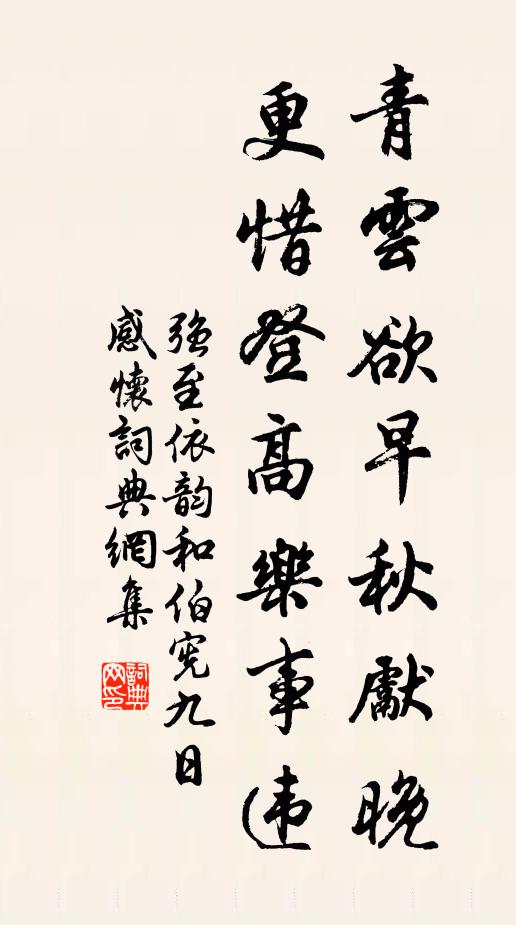 青雲欲早秋獻晚
更惜登高樂事违
強至依韵和伯宪九日
感懷詞典網集
詞典网印